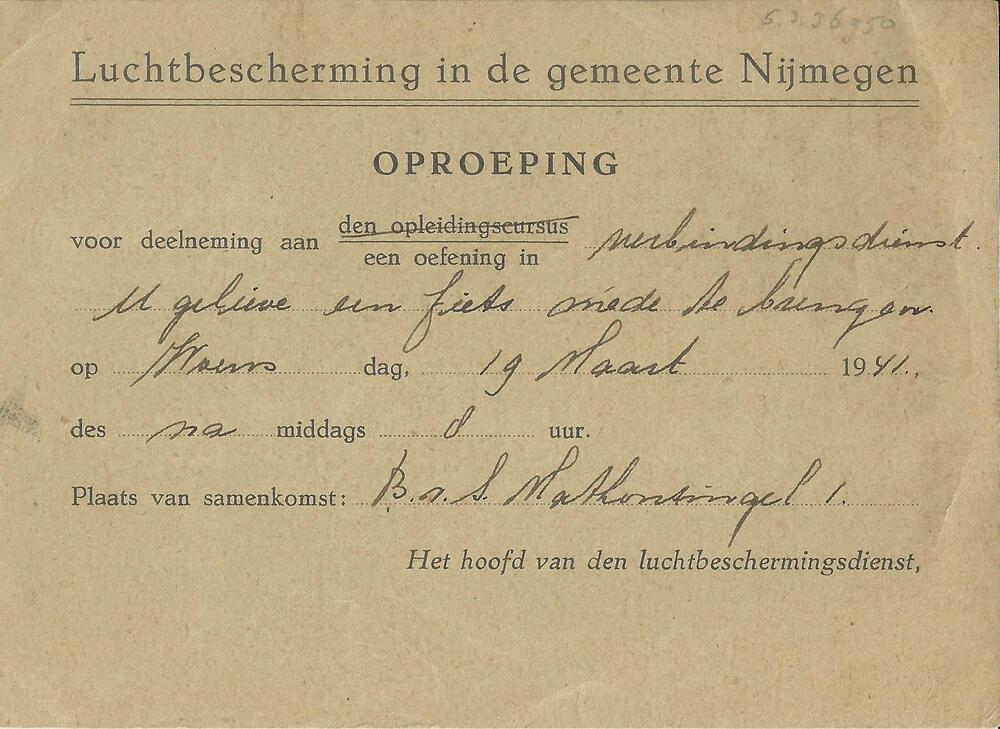 Luchtbescherming in de gemeente Nijmegen
OPROEPING
voor deelneming aan den opleidingscursus
een oefening in verbindingsdienst.
U gelieve een fiets mede te brengen.
op Woens dag, 19 Maart 1941.,
des na middags 8 uur.
Plaats van samenkomst: B.v.S. Mathonsingel 1.
Het hoofd van den luchtbeschermingsdienst,